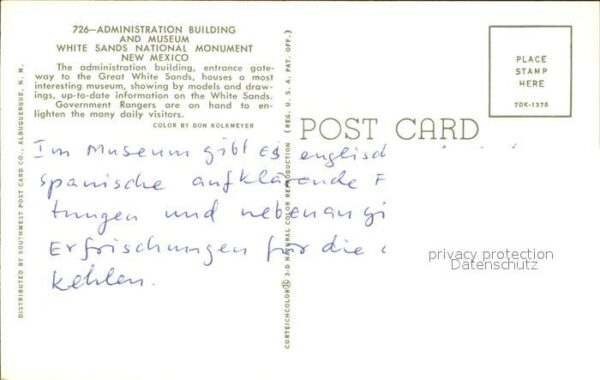 726—ADMINISTRATION BUILDING
AND MUSEUM
WHITE SANDS NATIONAL MONUMENT
NEW MEXICO
The administration building, entrance gate-
way to the Great White Sands, houses a most
interesting museum, showing by models and draw-
ings, up-to-date information on the White Sands.
Government Rangers are on hand to en-
lighten the many daily visitors.
COLOR BY DON KOLKMEYER
DISTRIBUTED BY SOUTHWEST POST CARD CO., ALBUQUERQUE, N. M.
CURTEICHCOLOR® 3-D NATURAL COLOR REPRODUCTION (REG. U. S. A. PAT. OFF.)
POST CARD
PLACE
STAMP
HERE
7DK-1378
Im Museum gibt es englisch
spanische aufklärende F
tungen und nebenan gi
Erfrischungen für die
Kehlen.
privacy protection
Datenschutz